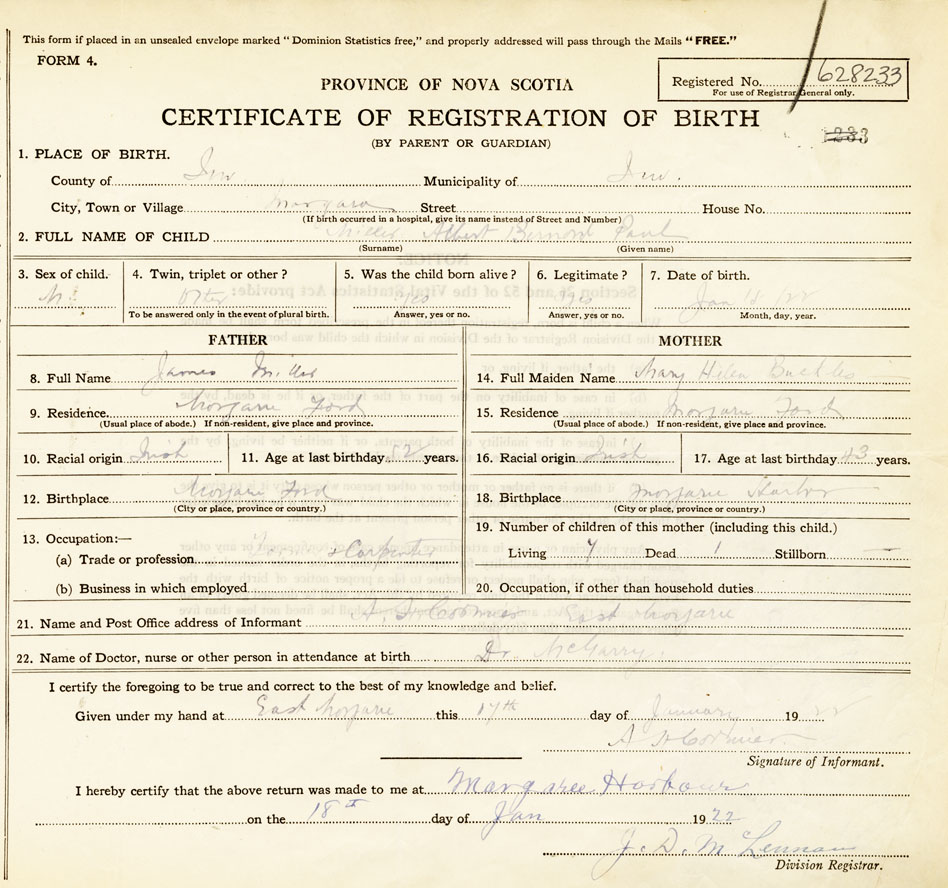 This form if placed in an unsealed envelope marked "Dominion Statistics free," and properly addressed will pass through the Mails "FREE."
FORM 4.
Registered No. 628233
For use of Registrar General only.
PROVINCE OF NOVA SCOTIA
CERTIFICATE OF REGISTRATION OF BIRTH
(BY PARENT OR GUARDIAN)
1. PLACE OF BIRTH.
County of Inv. Municipality of Inv.
City, Town or Village Street House No.
(If birth occurred in a hospital, give its name instead of Street and Number)
2. FULL NAME OF CHILD Albert Paul
(Surname) (Given name)
3. Sex of child. 4. Twin, triplet or other? 5. Was the child born alive? 6. Legitimate? 7. Date of birth.
M. yes yes Jan
To be answered only in the event of plural birth. Answer, yes or no. Answer, yes or no. Month, day, year.
FATHER MOTHER
8. Full Name James 14. Full Maiden Name Mary Helen
9. Residence. Ford 15. Residence Ford
(Usual place of abode.) If non-resident, give place and province. (Usual place of abode.) If non-resident, give place and province.
10. Racial origin Irish 11. Age at last birthday 52 years. 16. Racial origin Irish 17. Age at last birthday 43 years.
12. Birthplace Ford 18. Birthplace Harbor
(City or place, province or country.) (City or place, province or country.)
19. Number of children of this mother (including this child.)
13. Occupation:—
(a) Trade or profession & Carpenter Living 7 Dead 1 Stillborn —
(b) Business in which employed 20. Occupation, if other than household duties
21. Name and Post Office address of Informant East
22. Name of Doctor, nurse or other person in attendance at birth Dr. McGarry.
I certify the foregoing to be true and correct to the best of my knowledge and belief.
Given under my hand at East this 17th day of January 19 22
Signature of Informant.
I hereby certify that the above return was made to me at Margaree Harbour
on the 18th day of Jan 1922
J. D. McLennan
Division Registrar.